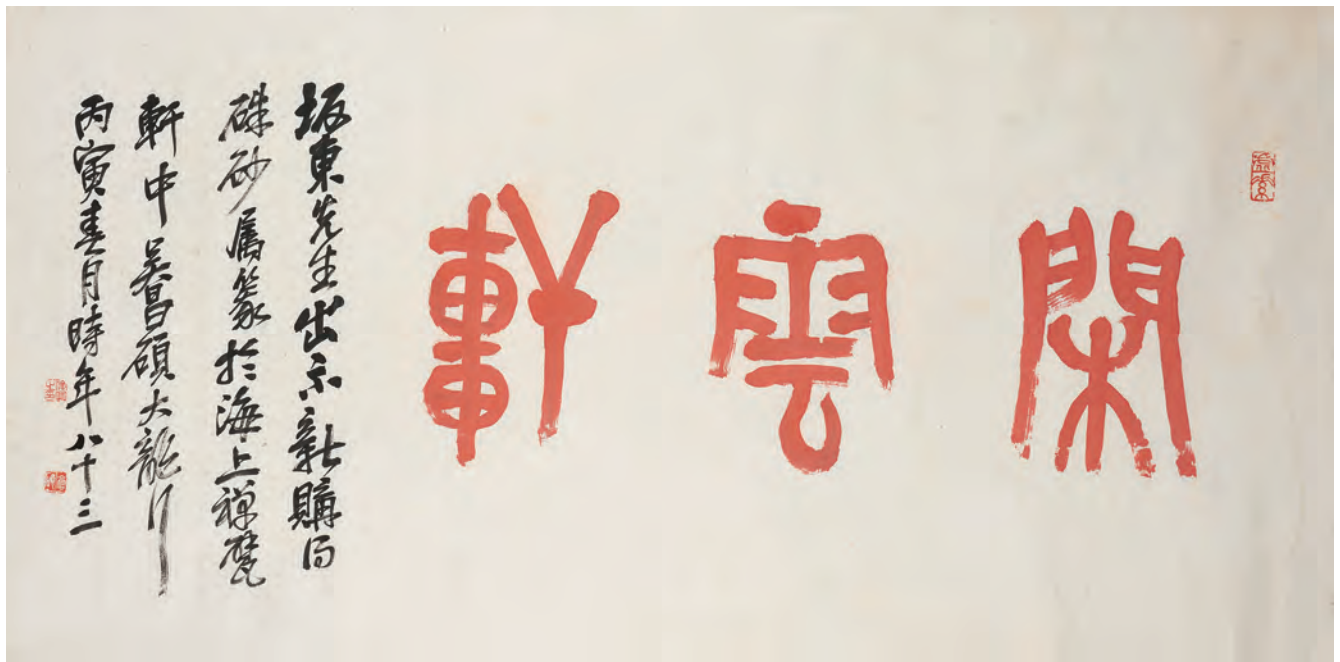 閑雲軒
坂東先生出示新購得
硃砂屬篆於海上禪甓
軒中吳昌碩大聾
丙寅春月時年八十三